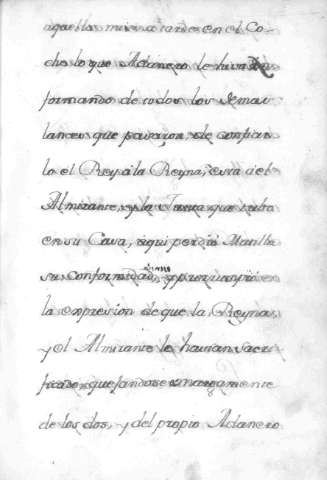 aquella misma tarde en el Co-
che lo que Adanero le hiba in
formando de todos los demas
lances que pasaron, de
lo el Rey a la Reyna, esta a el
Almirante, y la Junta que hubo
en su Casa, aqui perdió Matilla
su conformidad,
la expresion de que la Reyna,
y el Almirante le havian sacri-
ficado, quejandose amargamente
de los dos, y del propio Adanero